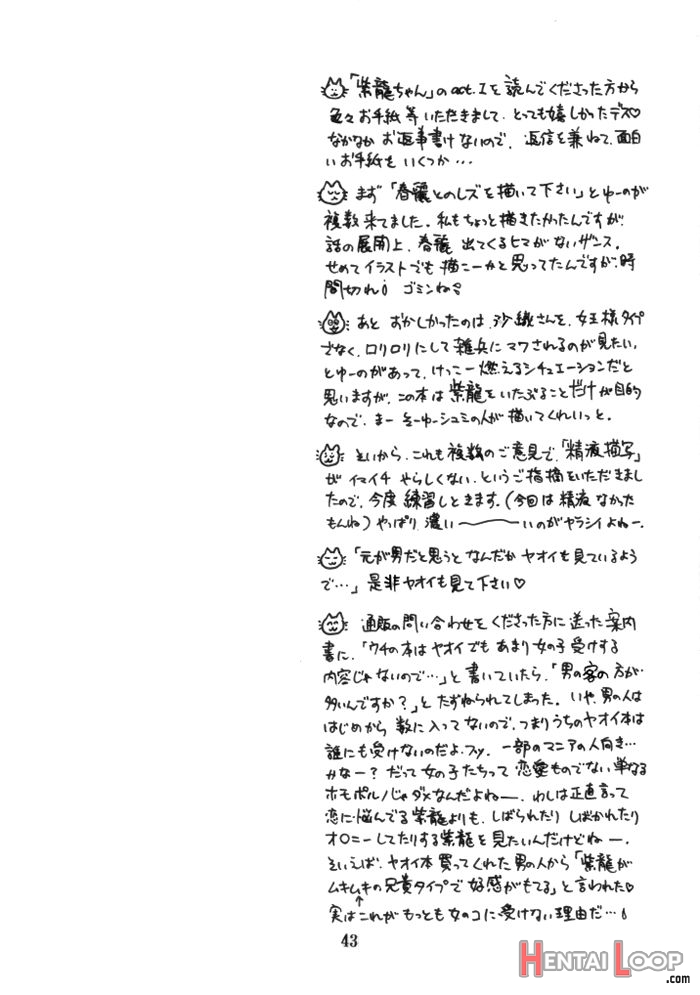 「紫龍ちゃん」のact.Iを読んでくださった方から
色々お手紙等いただきまして、とっても嬉しかったデス♡
なかなかお返事書けないので、返信を兼ねて、面白
いお手紙をいくつか…
まず「春麗とのレズを描いて下さい」とゆーのが
複数来てました。私もちょっと描きたかったんですが、
話の展開上、春麗出てくるヒマがないザンス。
せめてイラストでも描こーかと思ってたんですが、時
間切れ! ゴミンね
あとおかしかったのは、沙織さんを、女王様タイプ
でなく、ロリロリにして雑兵にマワされるのが見たい、
とゆーのがあって、けっこー燃えるシチュエーションだと
思いますが、この本は紫龍をいたぶることだけが目的
なので、まーそーゆーシュミの人が描いてくれいっと。
そいから、これも複数のご意見で、「精液描写」
がイマイチやらしくない、というご指摘をいただきまし
たので、今度練習しときます。(今回は精液なかった
もんね)やっぱり濃い〜いのがヤラシイよねー。
「元が男だと思うとなんだかヤオイも見ているよう
で…」是非ヤオイも見て下さい♡
通販の問い合わせをくださった方に送った案内
書に、「ウチの本はヤオイでもあまり女の子受けする
内容じゃないので…」と書いていたら、「男の客の方が
多いんですか?」とたずねられてしまった。いや、男の人は
はじめから数に入ってないので、つまりうちのヤオイ本は
誰にも受けないのだよ、フッ。一部のマニアの人向き…
かなー?だって女の子たちって恋愛ものでない単なる
ホモポルノじゃダメなんだよねー。わしは正直言って
恋に悩んでる紫龍よりも、しばられたりしばかれたり
オ○ニーしてたりする紫龍を見たいんだけどねー。
そいえば、ヤオイ本買ってくれた男の人から「紫龍が
ムキムキの兄貴タイプで好感がもてる」と言われた♡
実は↑これがもっとも女のコに受けない理由だ…!
43
HENTAI LOOP
.com